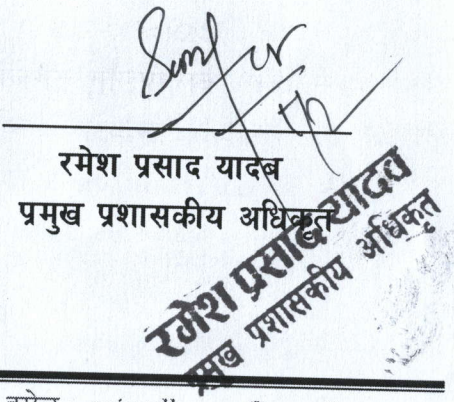 रमेश प्रसाद यादब
प्रमुख प्रशासकीय अधिकृत
रमेश प्रसाद यादव
प्रमुख प्रशासकीय अधिकृत